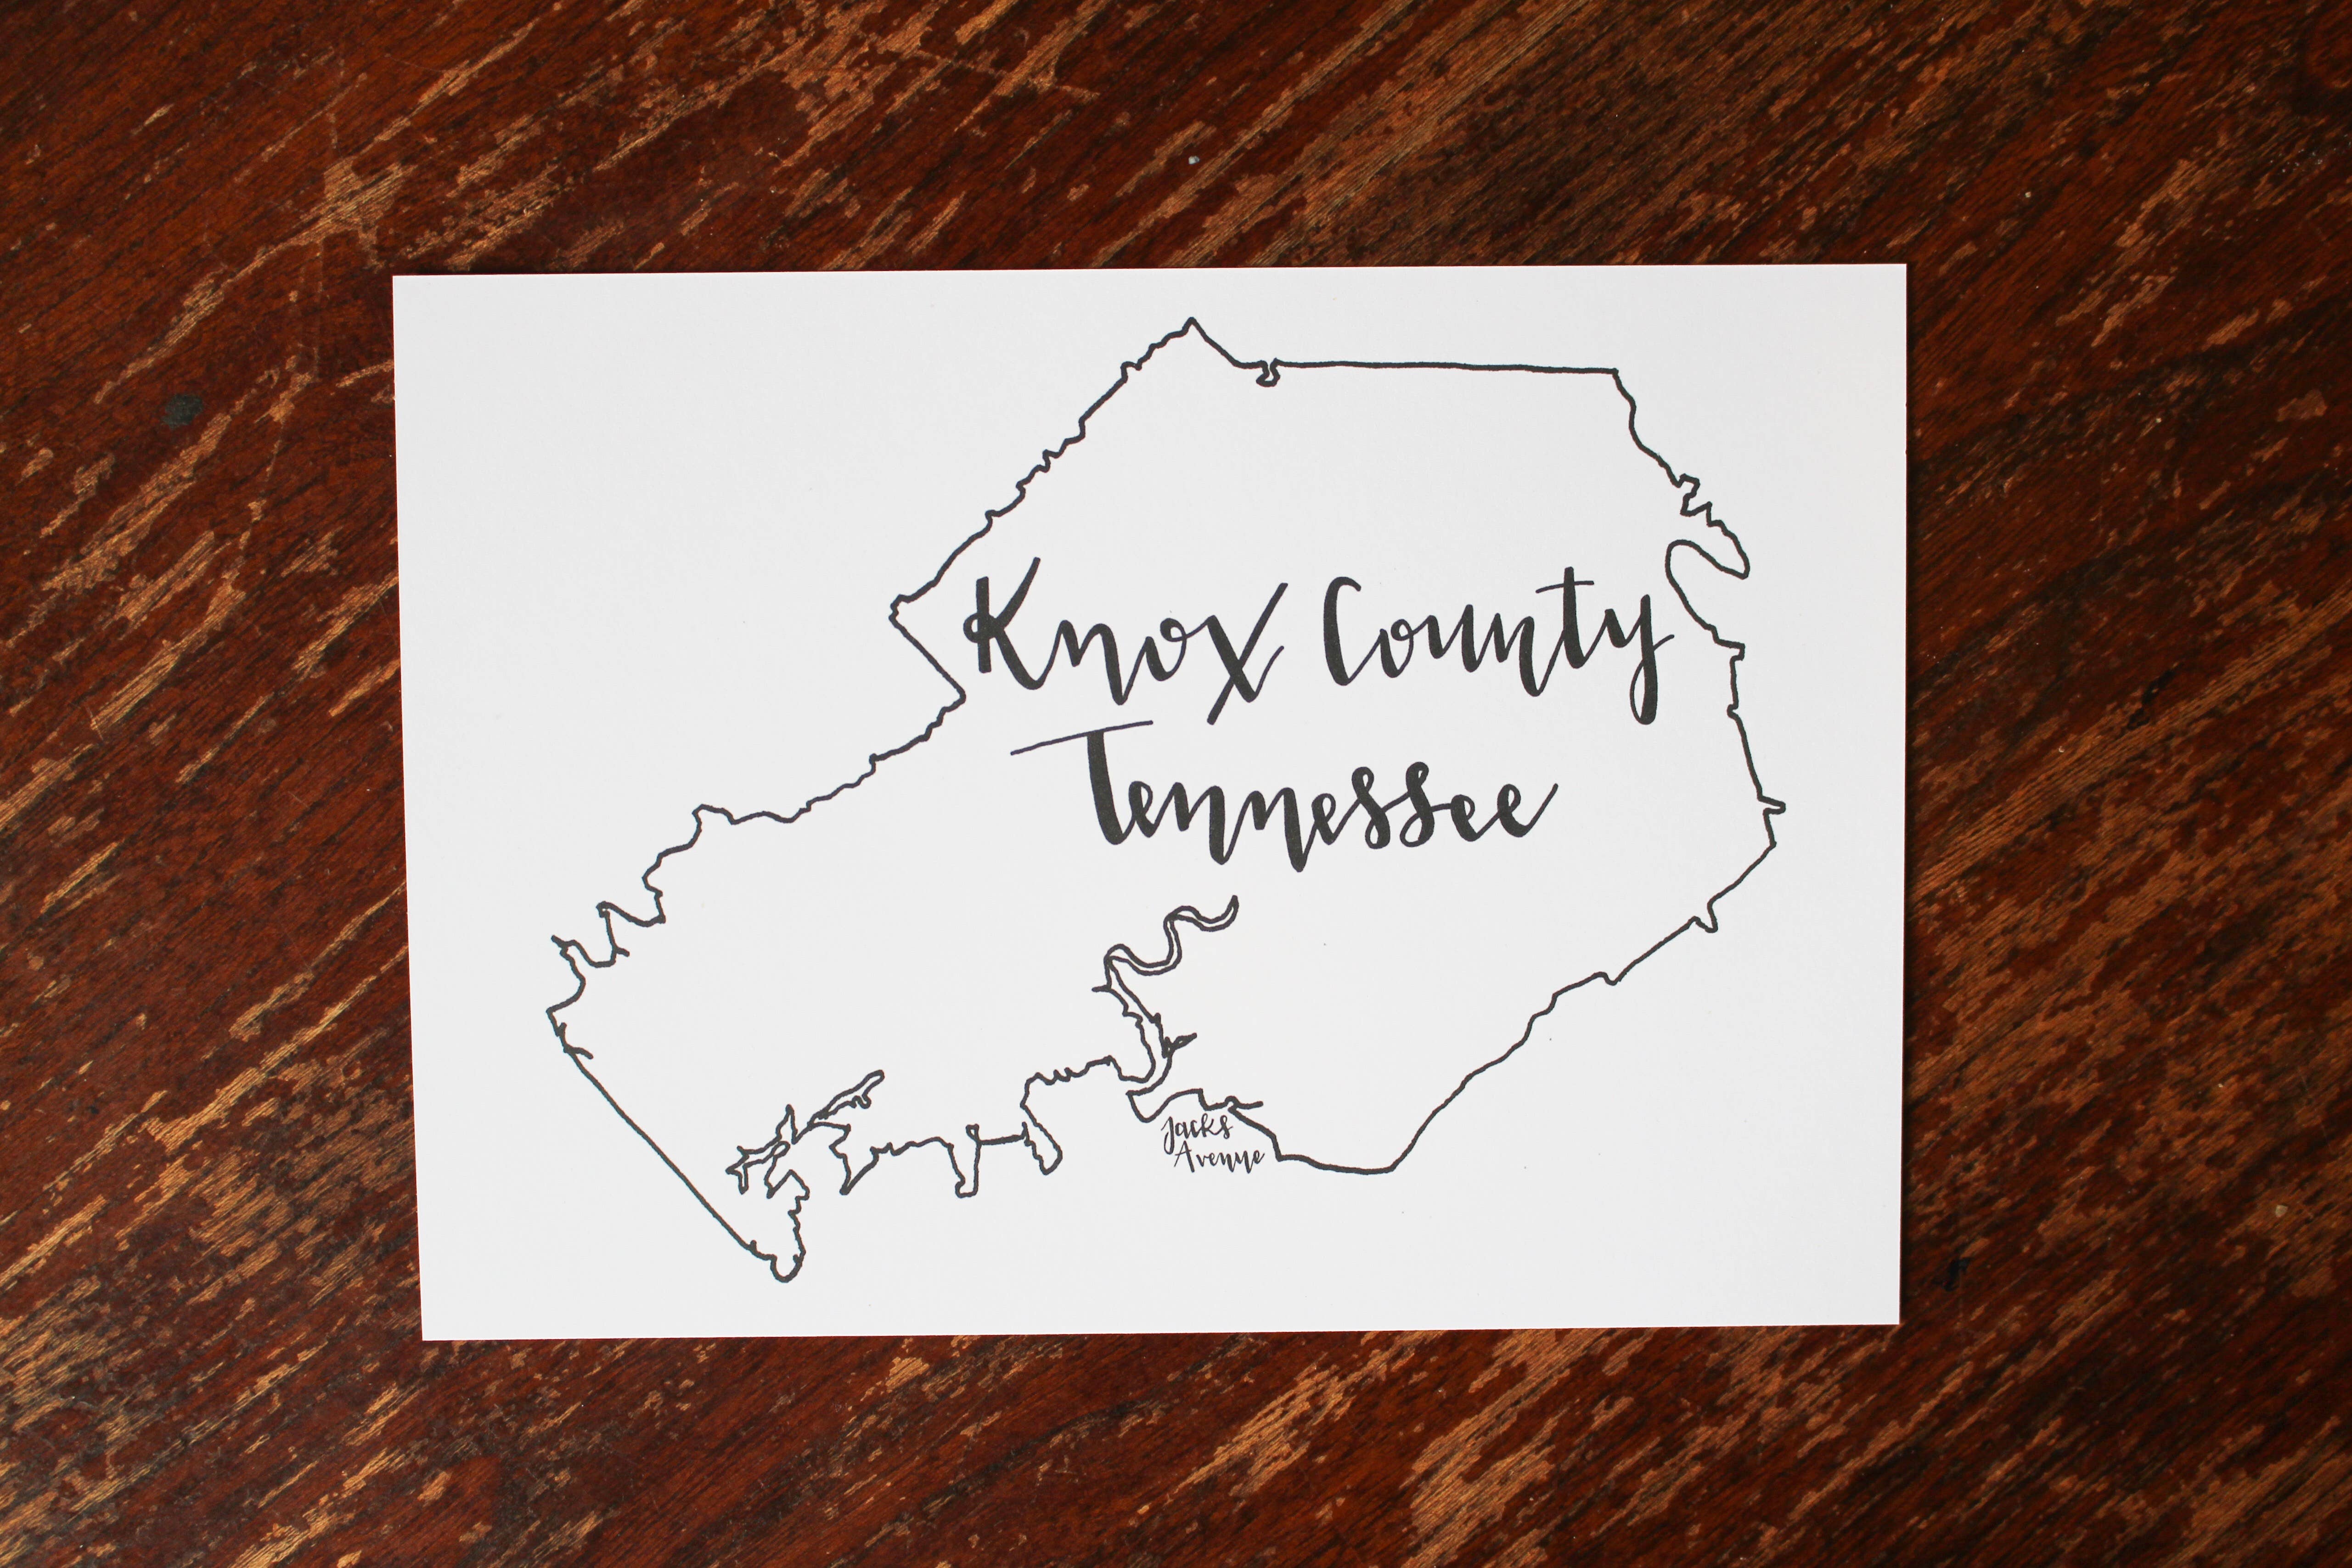 Knox County
Tennessee
Jacks
Avenue